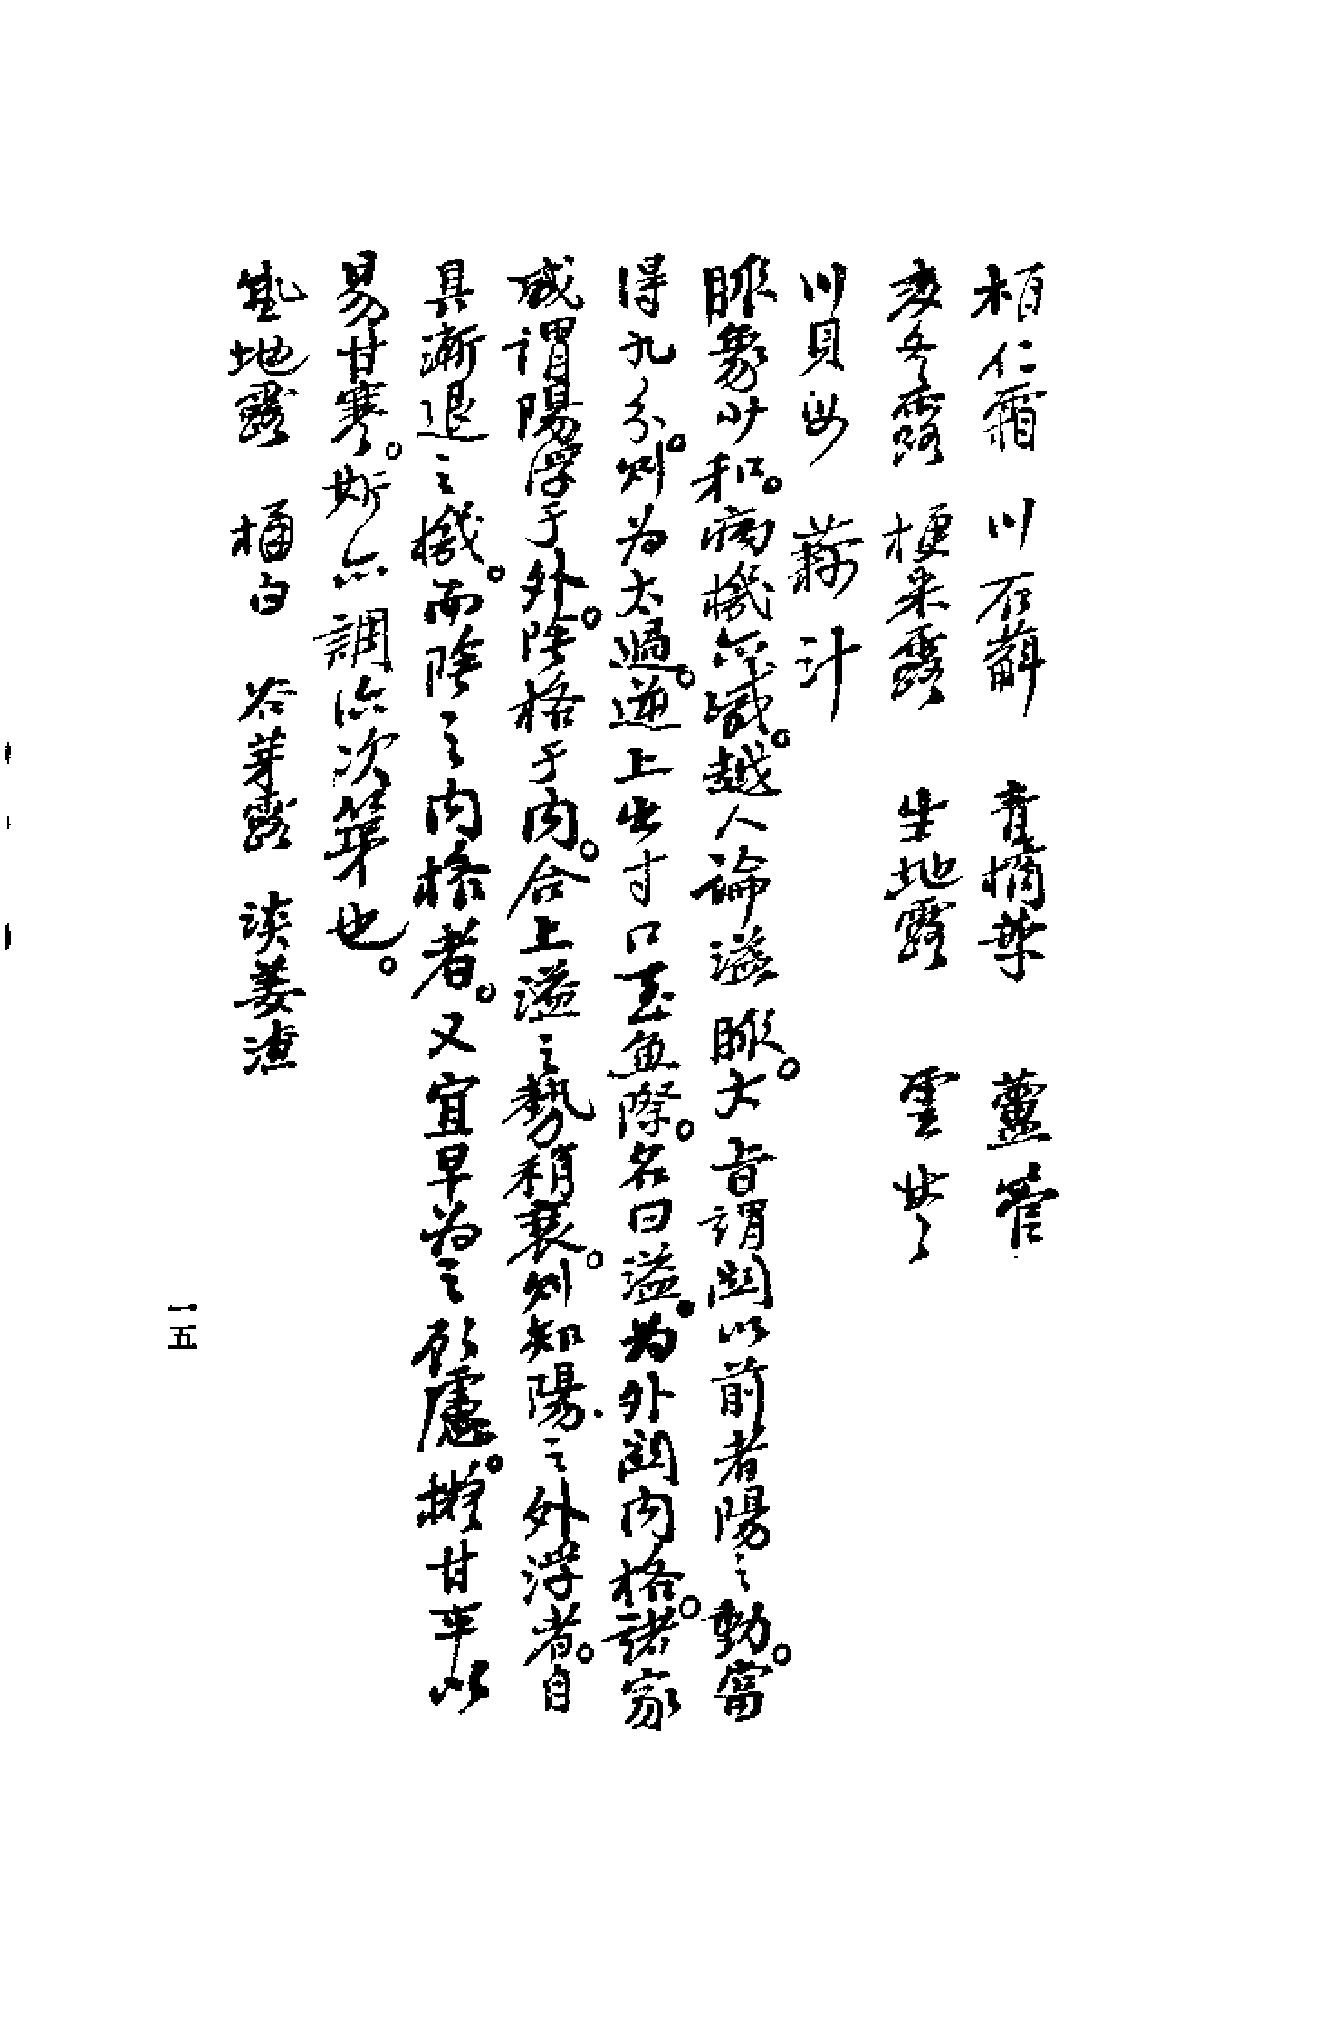 柏仁霜　川石斛　青橘葉　蘆管
麥冬露　梗米露　生地露　雲苓
川貝母　藕汁
脈象少和。病機亦減。越人論溢脈。大旨謂關以前者陽之動。當
得九分。則為太過。遂上出寸口至魚際。名曰溢。為外關內格。諸家
咸謂陽浮于外。陰格于內。合上溢之勢稍衰。則知陽之外浮者。自
具漸退之機。而陰之內格者。又宜早為之顧慮。擬甘平以
易甘寒。斯亦調治次第也。
墊地露　橘白　谷芽露　淡姜渣
一五